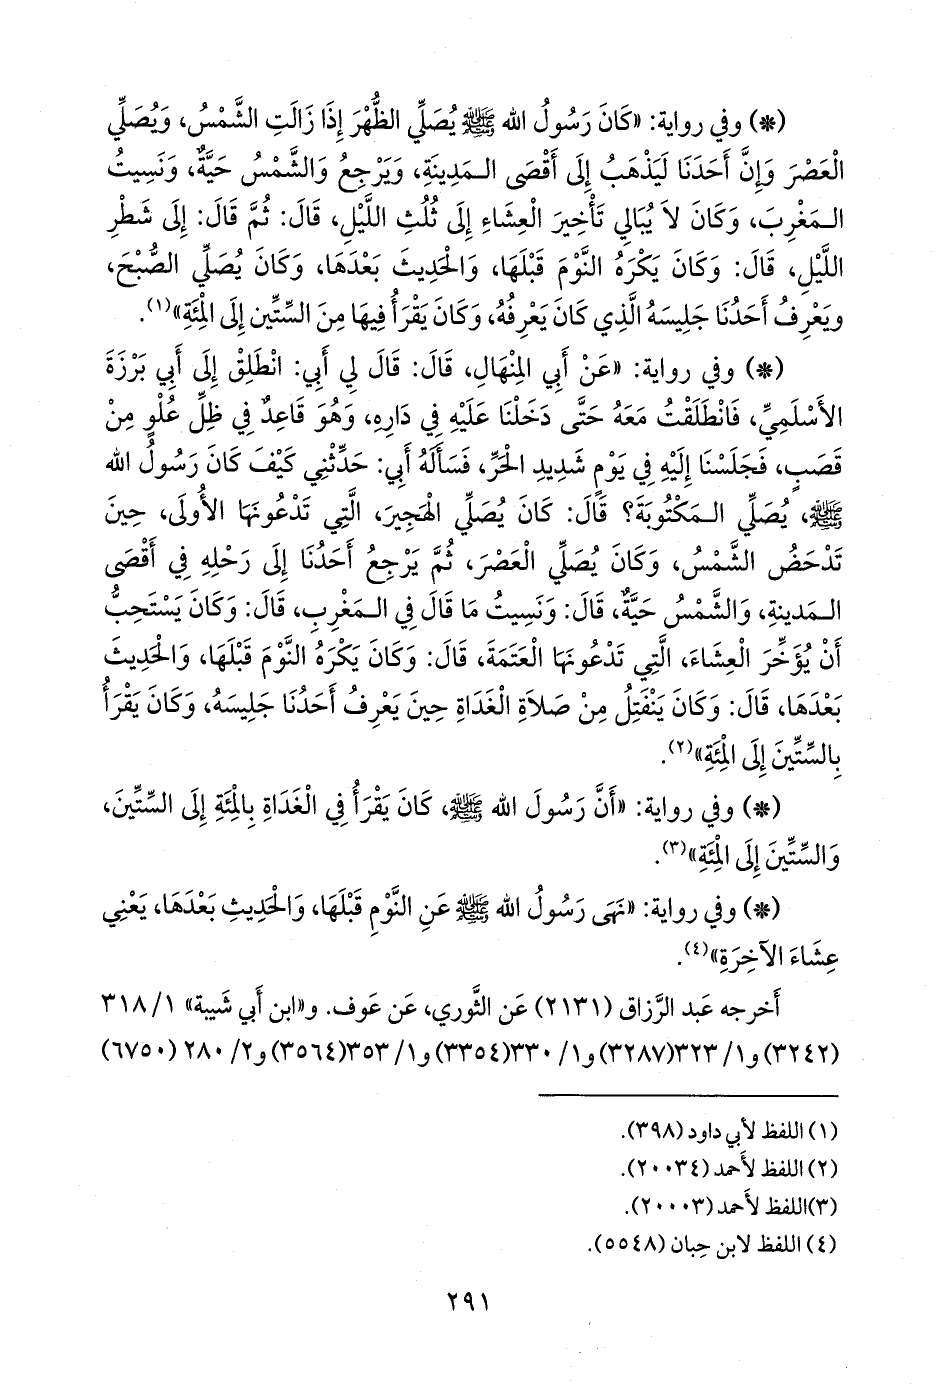 (*) وفي رواية: «كَانَ رَسُولُ الله ﷺ يُصَلِّي الظُّهْرَ إِذَا زَالَتِ الشَّمْسُ، وَيُصَلِّي
الْعَصْرَ وَإِنَّ أَحَدَنَا لَيَذْهَبُ إِلَى أَقْصَى الـمَدِينَةِ، وَيَرْجِعُ وَالشَّمْسُ حَيَّةٌ، وَنَسِيتُ
الـمَغْرِبَ، وَكَانَ لاَ يُبَالِي تَأْخِيرَ الْعِشَاءِ إِلَى ثُلُثِ اللَّيْلِ، قَالَ: ثُمَّ قَالَ: إِلَى شَطْرِ
اللَّيْلِ، قَالَ: وَكَانَ يَكْرَهُ النَّوْمَ قَبْلَهَا، وَالْحَدِيثَ بَعْدَهَا، وَكَانَ يُصَلِّي الصُّبْحَ،
ويَعْرِفُ أَحَدُنَا جَلِيسَهُ الَّذِي كَانَ يَعْرِفُهُ، وَكَانَ يَقْرَأُ فِيهَا مِنَ السِّتِّين إِلَى الْمِئَةِ»(١).
(*) وفي رواية: «عَنْ أَبِي المِنْهَالِ، قَالَ: قَالَ لِي أَبِي: انْطَلِقْ إِلَى أَبِي بَرْزَةَ
الأَسْلَمِيِّ، فَانْطَلَقْتُ مَعَهُ حَتَّى دَخَلْنَا عَلَيْهِ فِي دَارِهِ، وَهُوَ قَاعِدٌ فِي ظِلِّ عُلْوٍ مِنْ
قَصَبٍ، فَجَلَسْنَا إِلَيْهِ فِي يَوْمٍ شَدِيدِ الْحَرِّ، فَسَأَلَهُ أَبِي: حَدِّثْنِي كَيْفَ كَانَ رَسُولُ الله
ﷺ، يُصَلِّي الـمَكْتُوبَةَ؟ قَالَ: كَانَ يُصَلِّي الْهَجِيرَ، الَّتِي تَدْعُونَهَا الأُولَى، حِينَ
تَدْحَضُ الشَّمْسُ، وَكَانَ يُصَلِّي الْعَصْرَ، ثُمَّ يَرْجِعُ أَحَدُنَا إِلَى رَحْلِهِ فِي أَقْصَى
الـمَدينةِ، وَالشَّمْسُ حَيَّةٌ، قَالَ: وَنَسِيتُ مَا قَالَ فِي الـمَغْرِبِ، قَالَ: وَكَانَ يَسْتَحِبُّ
أَنْ يُؤَخِّرَ الْعِشَاءَ، الَّتِي تَدْعُونَهَا الْعَتَمَةَ، قَالَ: وَكَانَ يَكْرَهُ النَّوْمَ قَبْلَهَا، وَالْحَدِيثَ
بَعْدَهَا، قَالَ: وَكَانَ يَنْفَتِلُ مِنْ صَلاَةِ الْغَدَاةِ حِينَ يَعْرِفُ أَحَدُنَا جَلِيسَهُ، وَكَانَ يَقْرَأُ
بِالسِّتِّينَ إِلَى الْمِئَةِ»(٢).
(*) وفي رواية: «أَنَّ رَسُولَ الله ﷺ، كَانَ يَقْرَأُ فِي الْغَدَاةِ بِالْمِئَةِ إِلَى السِّتِّينَ،
وَالسِّتِّينَ إِلَى الْمِئَةِ»(٣).
(*) وفي رواية: «نَهَى رَسُولُ الله ﷺ عَنِ النَّوْمِ قَبْلَهَا، وَالْحَدِيثِ بَعْدَهَا، يَعْنِي
عِشَاءَ الآخِرَةِ»(٤).
أَخرجه عَبد الرَّزاق (٢١٣١) عَن الثَّوري، عَن عَوف. و«ابن أَبي شَيبة» ١/ ٣١٨
(٣٢٤٢) و١/ ٣٢٣(٣٢٨٧) و١/ ٣٣٠(٣٣٥٤) و١/ ٣٥٣(٣٥٦٤) و٢/ ٢٨٠ (٦٧٥٠)
(١) اللفظ لأبي داود (٣٩٨).
(٢) اللفظ لأحمد (٢٠٠٣٤).
(٣)اللفظ لأحمد (٢٠٠٠٣).
(٤) اللفظ لابن حِبان (٥٥٤٨).
٢٩١